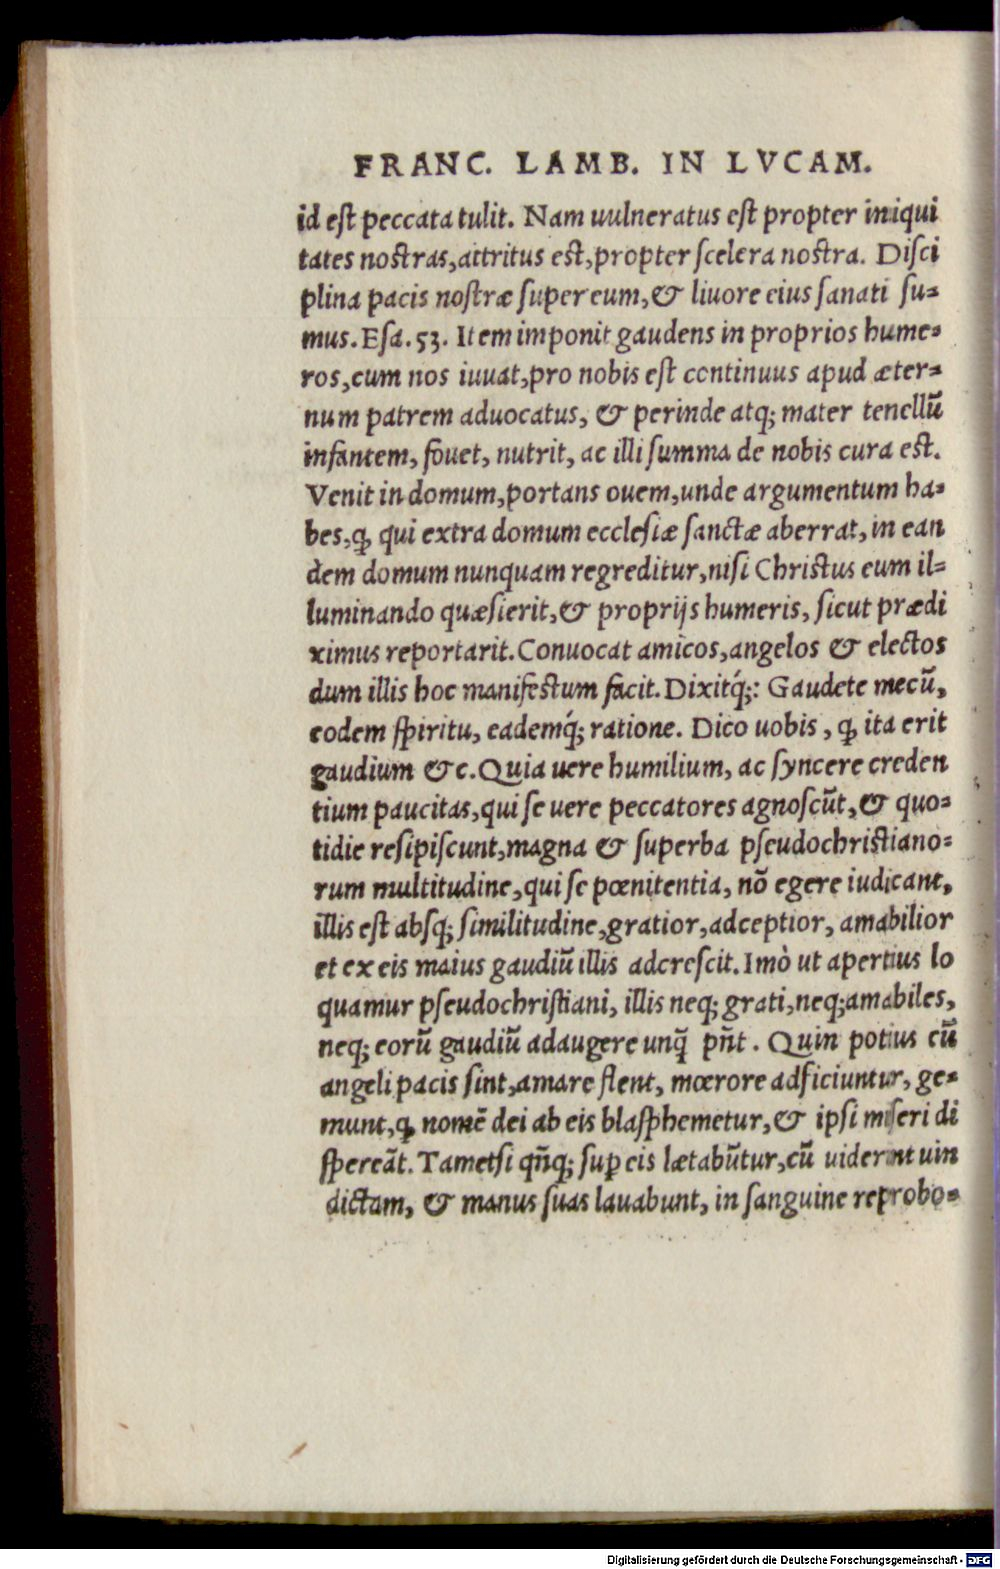 FRANC. LAMB. IN LVCAM.
id est peccata tulit. Nam uulneratus est propter iniqui
tates nostras, attritus est, propter scelera nostra. Disci
plina pacis nostræ super eum, & liuore eius sanati su=
mus. Esa. 53. Item imponit gaudens in proprios hume=
ros, cum nos iuuat, pro nobis est continuus apud æter=
num patrem aduocatus, & perinde atq; mater tenellū
infantem, fouet, nutrit, ac illi summa de nobis cura est.
Venit in domum, portans ouem, unde argumentum ha=
bes, ꝙ qui extra domum ecclesiæ sanctæ aberrat, in ean
dem domum nunquam regreditur, nisi Christus eum il=
luminando quæsierit, & proprijs humeris, sicut prædi
ximus reportarit. Conuocat amicos, angelos & electos
dum illis hoc manifestum facit. Dixitq́;: Gaudete mecū,
eodem spiritu, eademq́; ratione. Dico uobis, ꝙ ita erit
gaudium &c. Quia uere humilium, ac syncere creden
tium paucitas, qui se uere peccatores agnoscūt, & quo=
tidie resipiscunt, magna & superba pseudochristiano=
rum multitudine, qui se pœnitentia, nō egere iudicant,
illis est absq; similitudine, gratior, adceptior, amabilior
et ex eis maius gaudiū illis adcrescit. Imò ut apertius lo
quamur pseudochristiani, illis neq; grati, neq; amabiles,
neq; eorū gaudiū adaugere unq̄ pn̄t. Quin potius cū
angeli pacis sint, amare flent, mœrore adficiuntur, ge=
munt, ꝙ nomē dei ab eis blasphemetur, & ipsi miseri di
spereāt. Tametsi qn̄q; suꝑ eis lætabūtur, cū uiderint uin
dictam, & manus suas lauabunt, in sanguine reprobo=
Digitalisierung gefördert durch die Deutsche Forschungsgemeinschaft - DFG